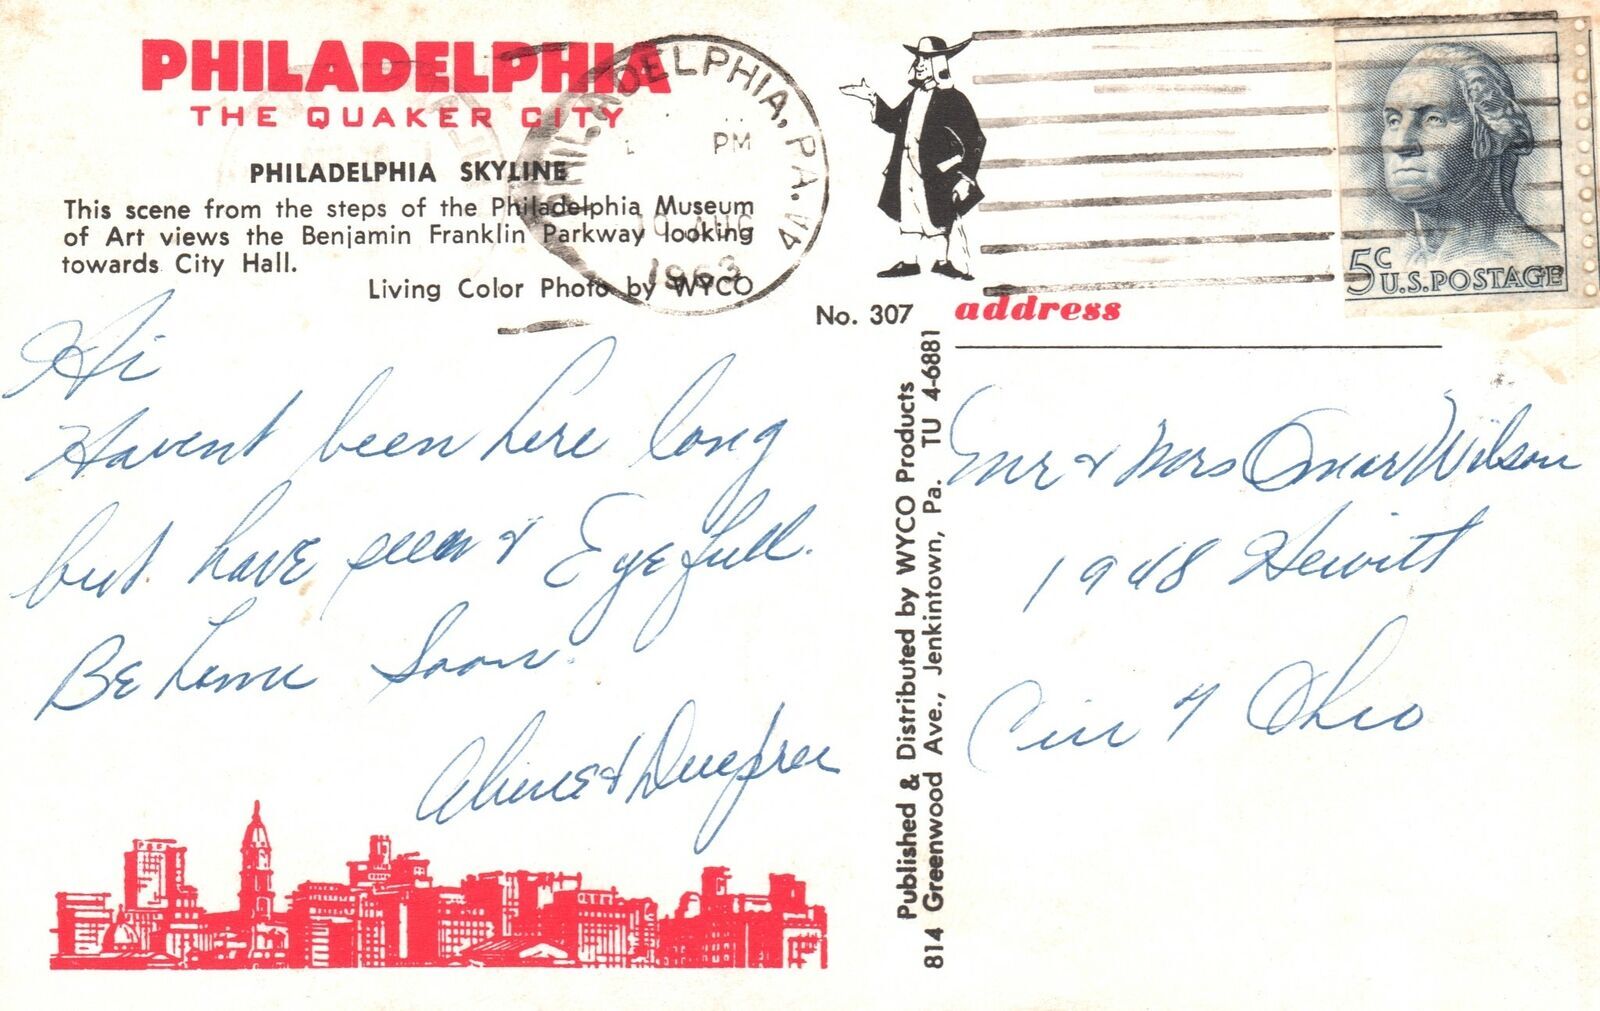 PHILADELPHIA
THE QUAKER CITY
PHILADELPHIA SKYLINE
This scene from the steps of the Philadelphia Museum
of Art views the Benjamin Franklin Parkway looking
towards City Hall.
Living Color Photo by WYCO
PHILADELPHIA, PA.
PM
AUG
1963
5c
U.S. POSTAGE
No. 307
address
Hi
Havent been here long
but have seen & Eye full.
Be home soon.
&
Published & Distributed by WYCO Products
814 Greenwood Ave., Jenkintown, Pa. TU 4-6881
Mr & Mrs Omar Wilson
1948 Hewitt
Cin 7 Ohio